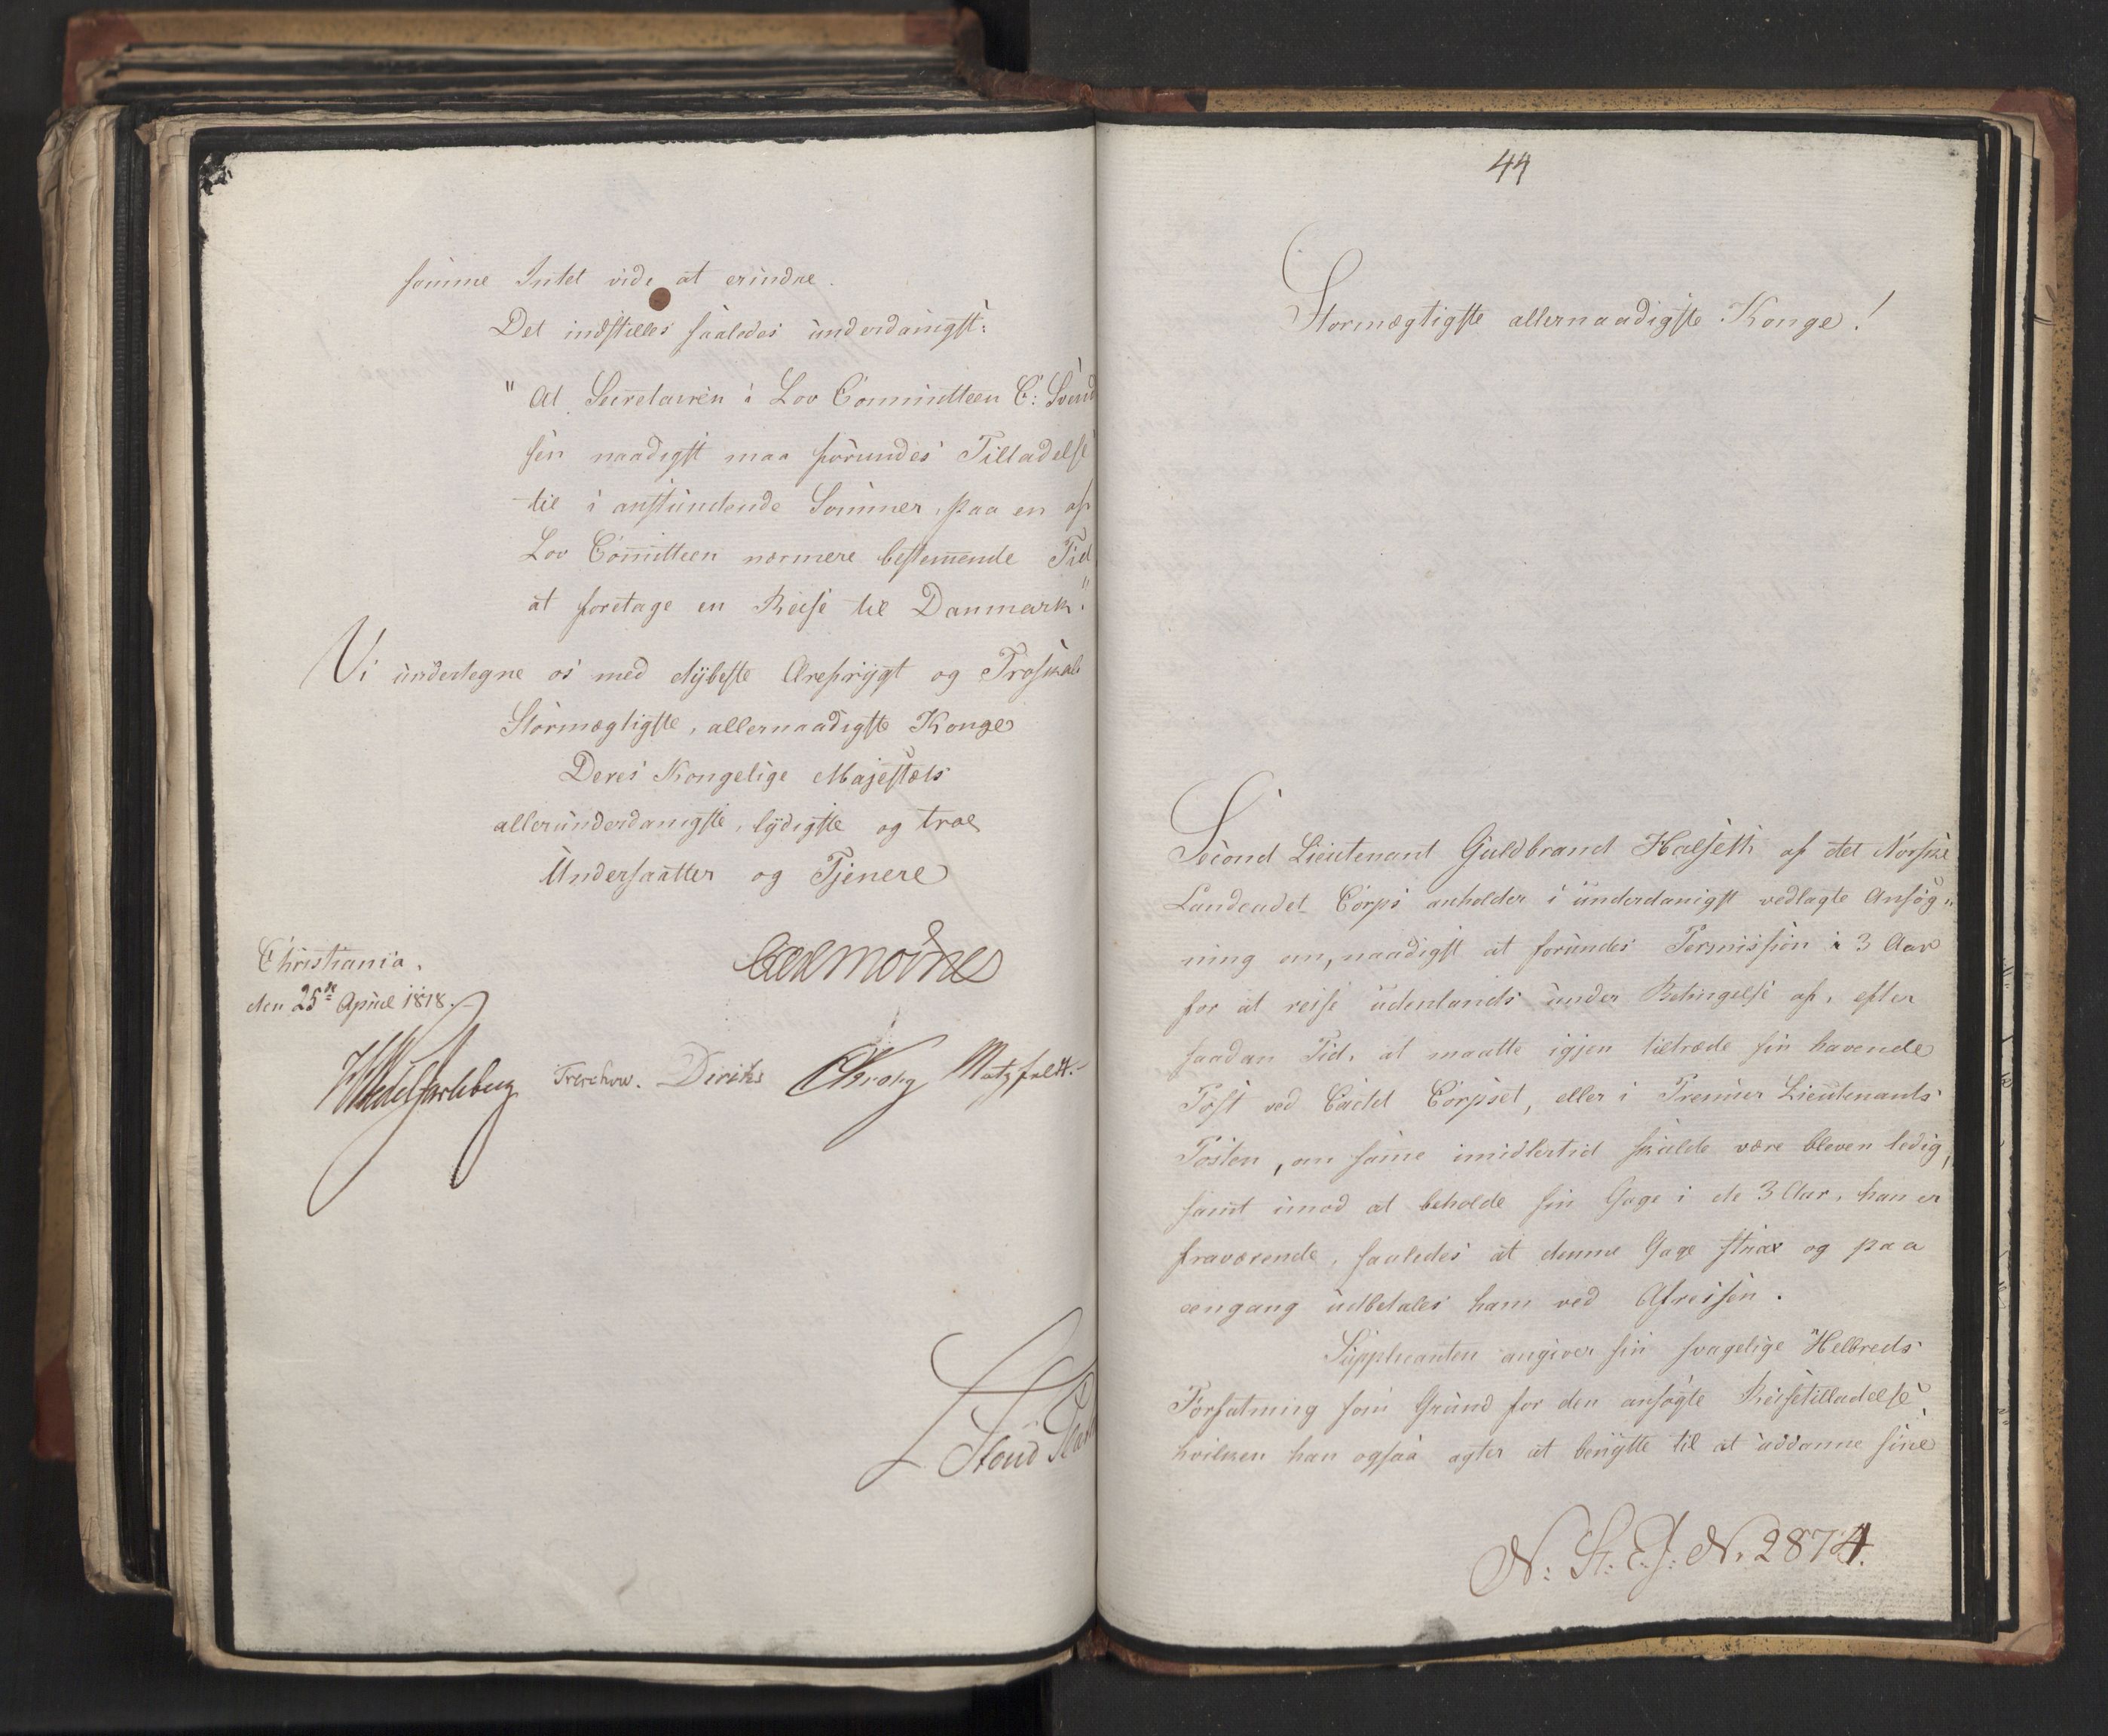 somme Intet vide at erindre.
Det indstilles saaledes underdanigst:
"At Secretairen i Lov Committeen C: Svend
sen naadigst maa forundes Tilladelse
til i anstundende Sommer, paa en af
Lov Committeen nærmere bestemmende Tid
at foretage en Reise til Danmark."
Vi undertegne os med dybeste Ærefrygt og Troskab
Stormægtigste, allernaadigste Konge
Deres Kongelige Majestæts
allerunderdanigste, lydigste og troe
Undersaatter og Tjenere
Christiania,
den 25de April 1818.
Carl Mörner
HWedel Jarlsberg Treschow. Diriks CKrohg Motzfeldt.
44
Stormægtigste allernaadigste Konge!
Second Lieutenant Guldbrand Halseth af det Norske
Landcadet Corps anholder i underdanigst vedlagte Ansøg-
ning om, naadigst at forundes Permission i 3 Aar
for at reise udenlands under Betingelse af, efter
saadan Tid, at maatte igjen tiltræde sin havende
Post ved Cadet Corpset, eller i Premier Lieutenants
Posten, om samme imidlertid skulde være bleven ledig,
samt imod at beholde sin Gage i de 3 Aar, han er
fraværende, saaledes at denne Gage strax og paa
eengang udbetales ham ved Afreisen.
Supplicanten angiver sin svagelige Helbreds
Forfatning som Grund for den ansøgte Reisetilladelse,
hvilken han ogsaa agter at benytte til at uddanne sine
N: St: E: J: N. 2874.